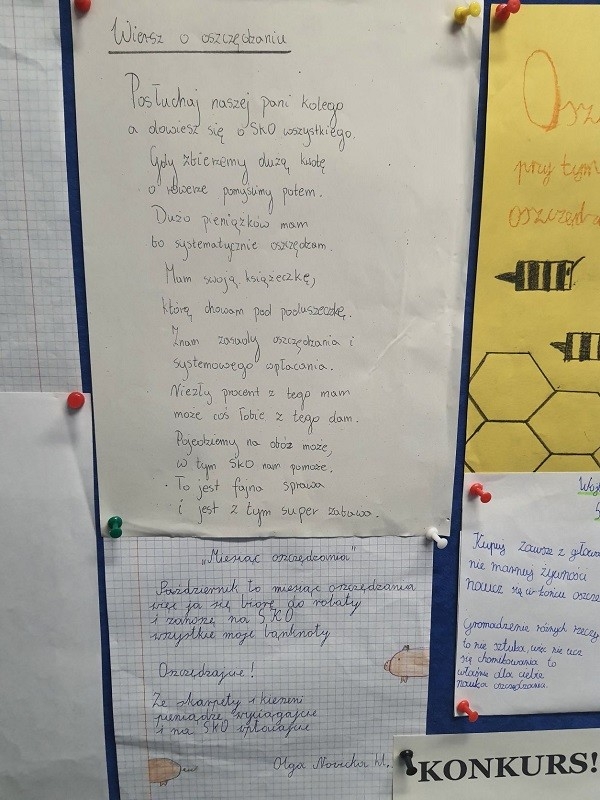 Wiersz o oszczędzaniu
Posłuchaj naszej pani kolego
a dowiesz się o SKO wszystkiego.
Gdy zbierzemy dużą kwotę
o rowerze pomyślimy potem.
Dużo pieniążków mam
bo systematycznie oszczędzam.
Mam swoją książeczkę,
którą chowam pod poduszeczkę.
Znam zasady oszczędzania i
systemowego wpłacania.
Niezły procent z tego mam
może coś Tobie z tego dam.
Pojedziemy na obóz może,
w tym SKO nam pomoże.
To jest fajna sprawa
i jest z tym super zabawa.
„Miesiąc oszczędzania"
Październik to miesiąc oszczędzania
więc ja się biorę do roboty
i zanoszę na SKO
wszystkie moje banknoty
Oszczędzajcie!
Ze skarpety i kieszeni
pieniądze wyciągajcie
i na SKO wpłacajcie
Olga Nowicka
przy tym
Kupuj zawsze z głową
nie marnuj żywności
naucz się w końcu
Gromadzenie różnych rzeczy
to nie sztuka, więc nie ucz
się chomikowania to
właśnie dla ciebie
nauka oszczędzania.
KONKURS!